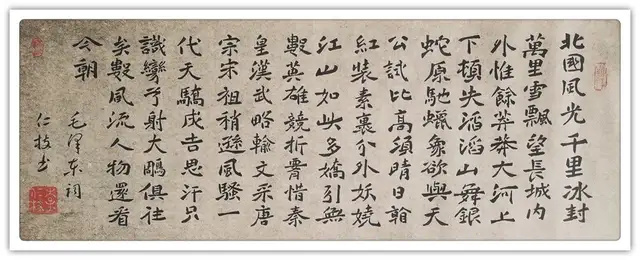 北國風光千里冰封
萬里雪飄望長城內
外惟餘莽莽大河上
下頓失滔滔山舞銀
蛇原馳蠟象欲與天
公試比高須晴日看
紅裝素裹分外妖嬈
江山如此多嬌引無
數英雄競折腰惜秦
皇漢武略輸文采唐
宗宋祖稍遜風騷一
代天驕成吉思汗只
識彎弓射大鵰俱往
矣數風流人物還看
今朝
毛澤東詞
仁技書